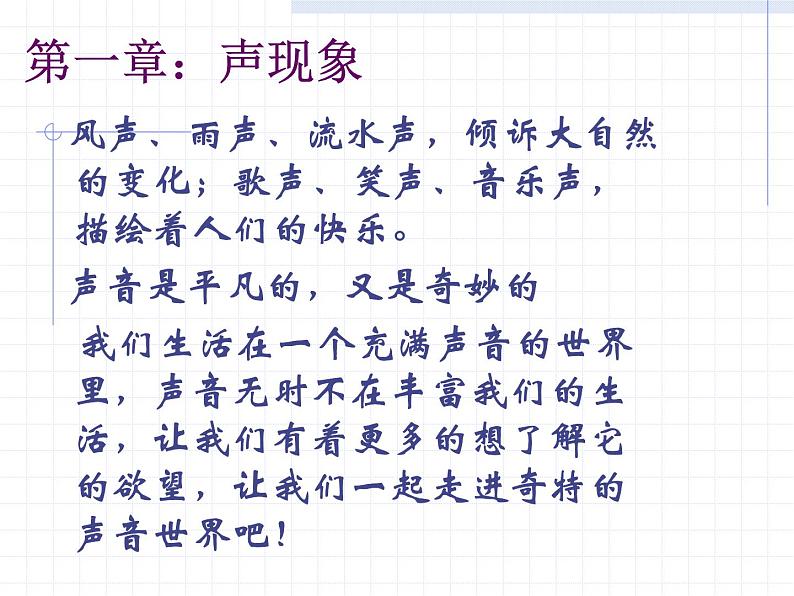 第一章：声现象
风声、雨声、流水声，倾诉大自然
的变化；歌声、笑声、音乐声，
描绘着人们的快乐。
声音是平凡的，又是奇妙的
我们生活在一个充满声音的世界
里，声音无时不在丰富我们的生
活，让我们有着更多的想了解它
的欲望，让我们一起走进奇特的
声音世界吧！